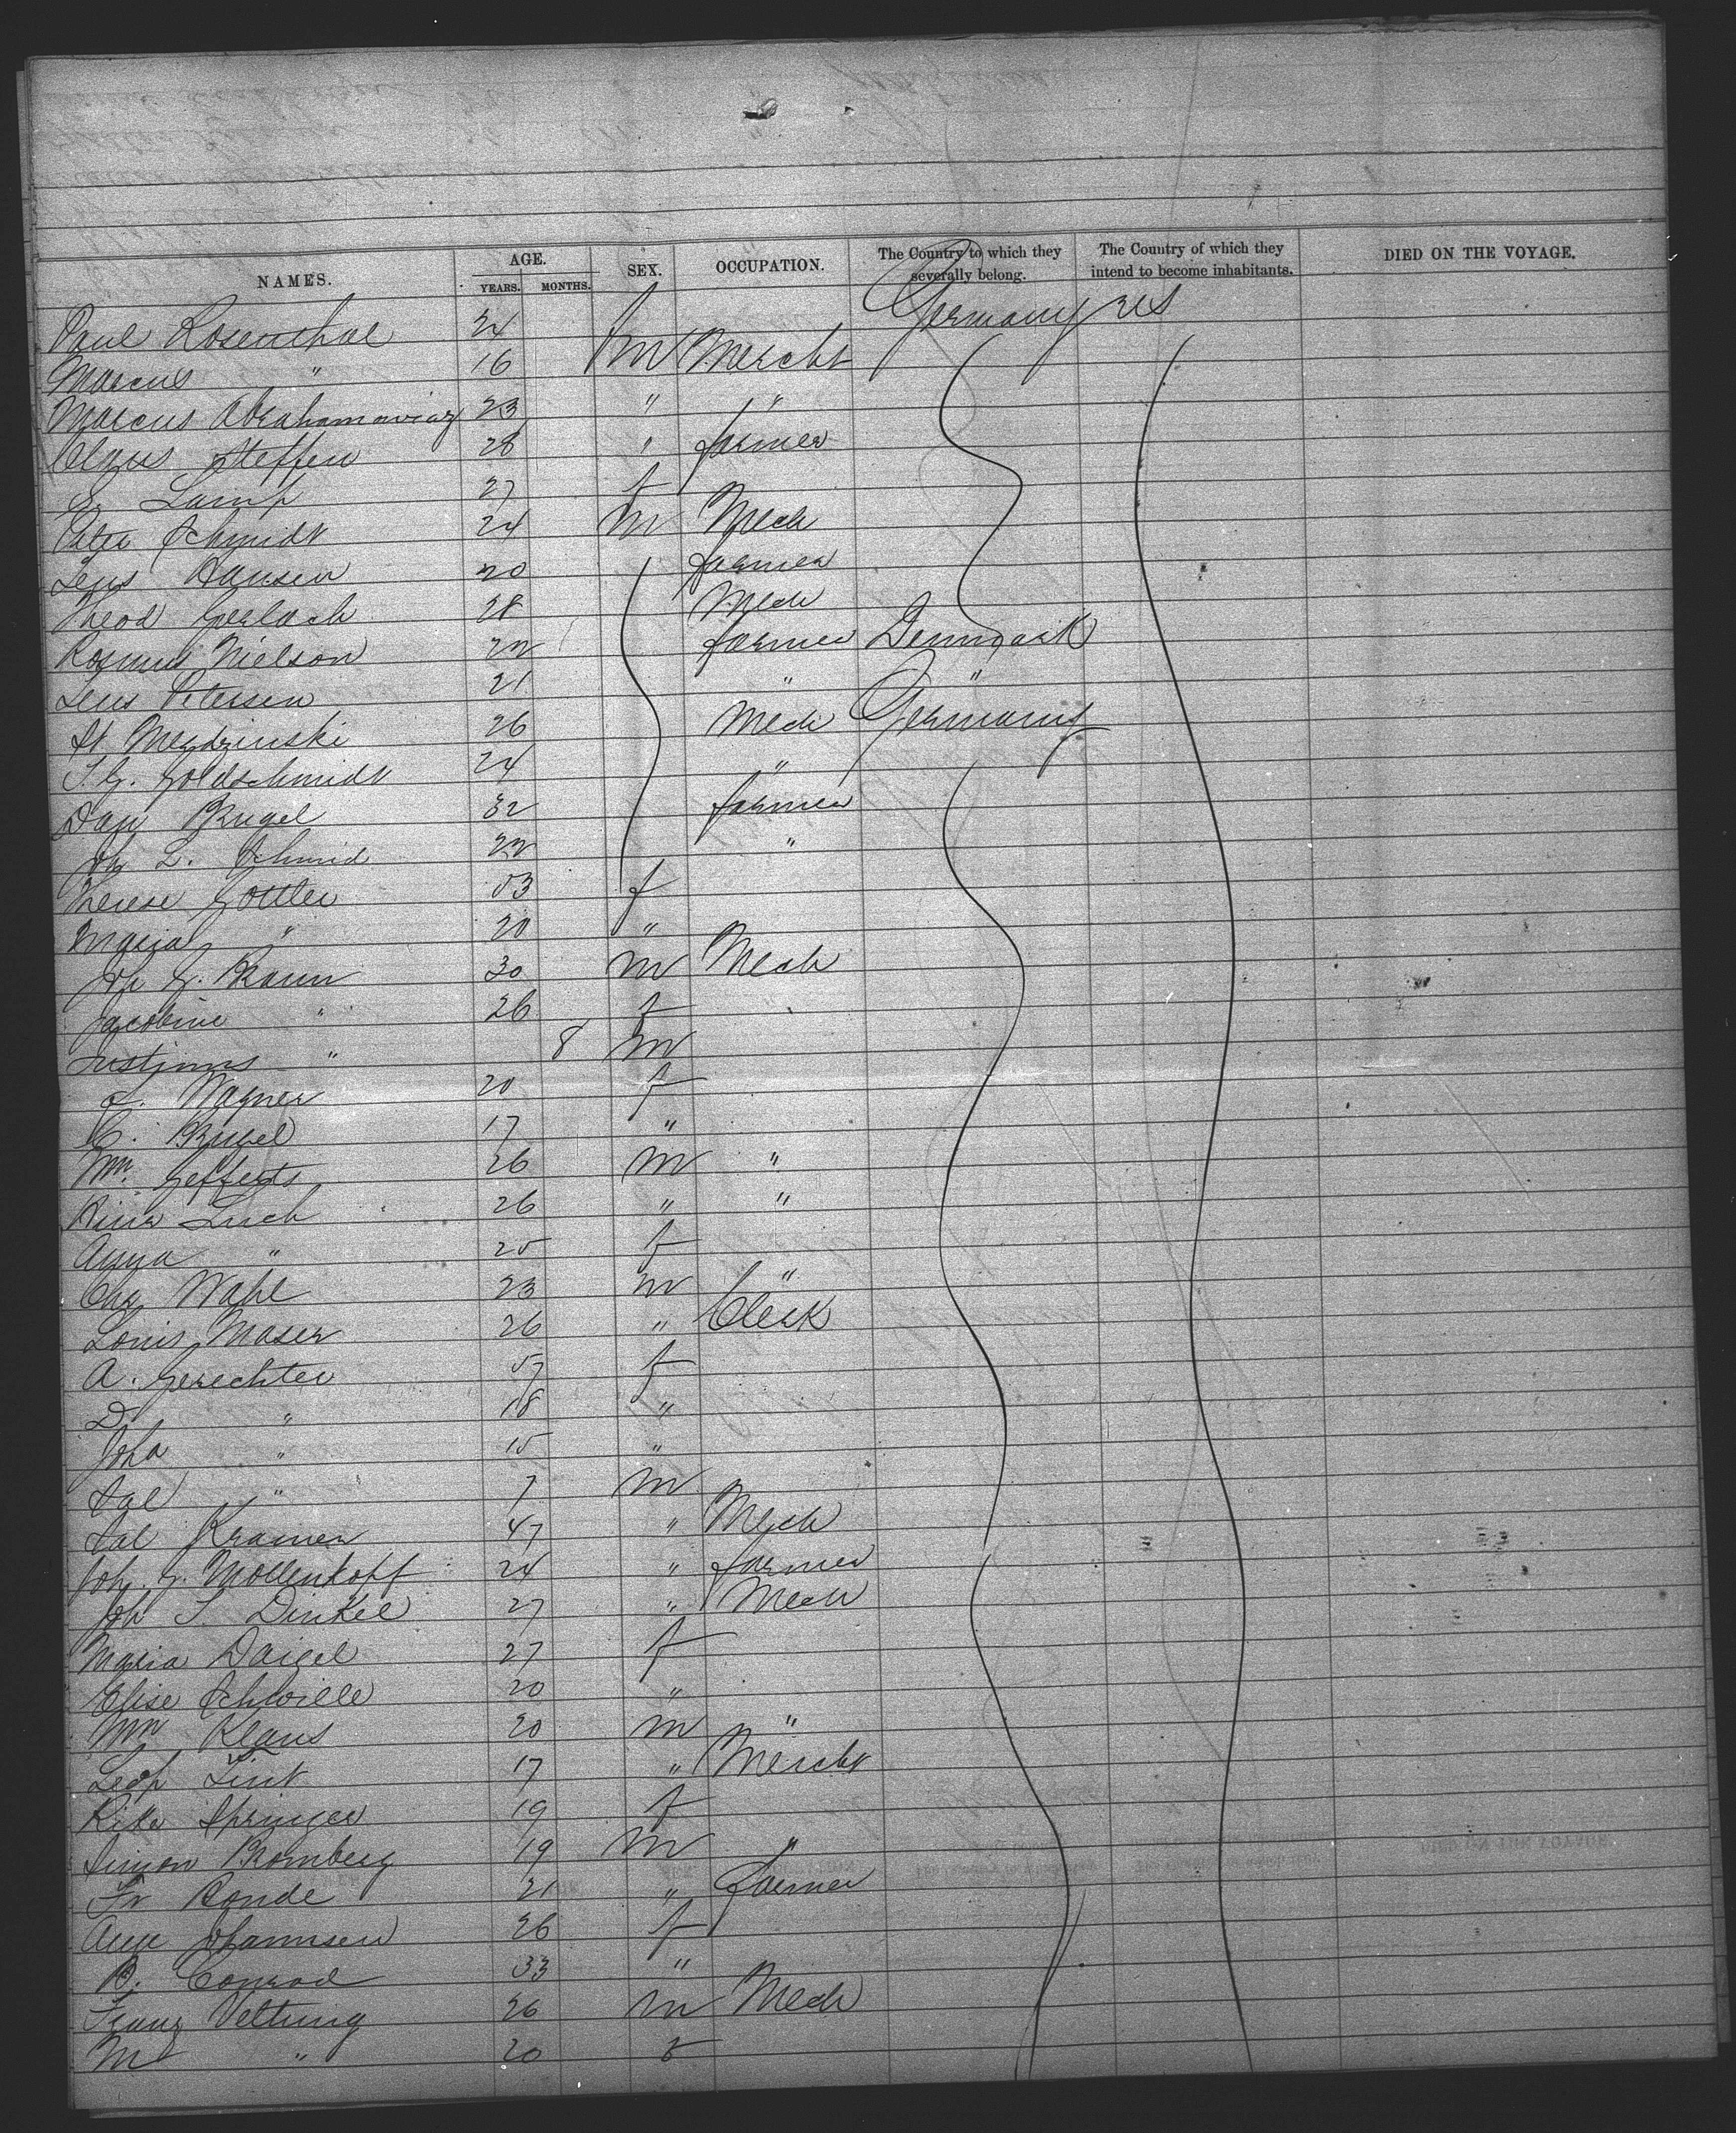 NAMES. AGE. YEARS. MONTHS. SEX. OCCUPATION. The Country to which they severally belong. The Country of which they intend to become inhabitants. DIED ON THE VOYAGE.
Paul Rosenthal 24 Germany US
Marcus " 16 m Mercht
Marcus Abrahamoviaz 23 " "
Claus Steffen 28 " farmer
Lamp 27 f
Peter Schmidt 24 m Mech
Jens Hansen 20 farmer
Theod Gerlach 28 Mech
Rasmus Nielson 22 farmer Denmark
Jens Petersen 21 " "
Mendzinski 26 Mech Germany
Goldschmidt 24 "
Dan Krugel 32 farmer
Joh L. Schmid 22 "
Therese Gottler 53 f
Maria " 20 "
Joh G. Braun 30 m Mech
Jacobine " 26 f
Justinus " 8 m
Wagner 20 f
C. 17 "
Wm. Gefferts 26 m "
Luch 26 " "
Anna " 25 f
Chr Wahl 23 m "
Louis Maser 26 " Clerk
A. Gerechter 57 f
D " 18 "
Joha " 15 "
Sal " 7 m
Sal Kramer 47 " Mech
Joh. G. Mollenkopf 24 " farmer
Joh Dinkel 27 " Mech
Maria Daigel 27 f
Elise Schwille 20 "
Wm Klaus 20 m "
Leop 17 " Mercht
Rike Springer 19 f
Simon Bromberg 19 m "
Fr Bonde 21 " farmer
Aug Johannsen 26 f
B. Conrad 33 "
Franz Veltung 26 m Mech
M " 20 f